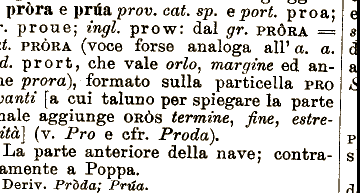 pròra e prúa prov. cat. sp. e port. proa;
r. proue; ingl. prow: dal gr. PRÔRA =
t. PRÒRA (voce forse analoga all'a. a.
d. prort, che vale orlo, margine ed an-
he prora), formato sulla particella PRO
vanti [a cui taluno per spiegare la parte
nale aggiunge OROS termine, fine, estre-
ità] (v. Pro e cfr. Proda).
La parte anteriore della nave; contra-
amente a Poppa.
Deriv. Pròda; Prúa.